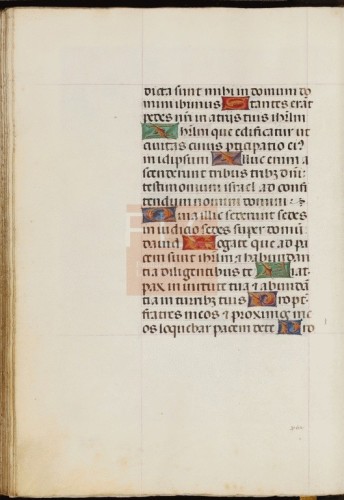 dicta sunt mihi in domum do
mini ibimus Stantes erāt
pedes nr̄i in atrijs tuis ihr̄lm
Ihr̄lm que edificatur ut
civitas cuius pticipatio ei⁹
in idipsum Illuc enim a
scenderunt tribus tribꝫ dn̄i
testimonium israel ad confi
tendum nomini domini
Quia illic sederunt sedes
in iudicio sedes super domū
dauid Rogate que ad pa
cem sunt ihr̄lm & habundan
tia diligentibus te Fiat
pax in uirtute tua & abundā
tia in turribꝫ tuis Propt̄
fratres meos & proximos me
os loquebar pacem de te Pro